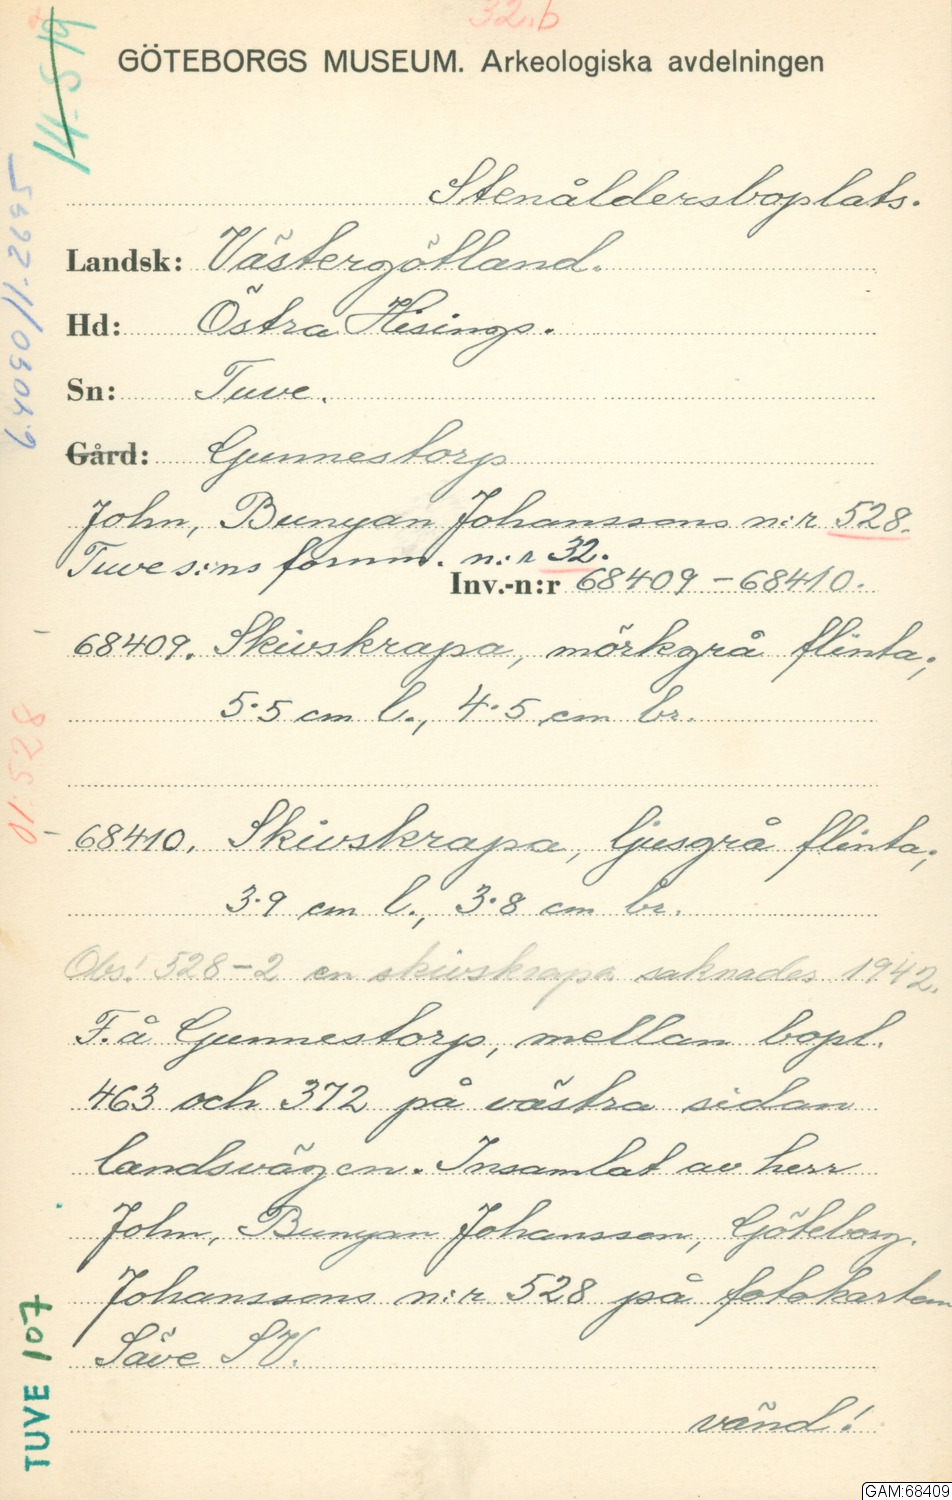 32.b
GÖTEBORGS MUSEUM. Arkeologiska avdelningen
Stenåldersboplats.
Landsk: Västergötland.
Hd: Östra Hisings.
Sn: Tuve.
Gård: Gunnestorp
John, Bunyan Johanssons n:r 528.
Tuve s:ns fornm. n:r 32.
Inv.-n:r 68409 – 68410.
68409. Skivskrapa, mörkgrå flinta;
5.5 cm l., 4.5 cm br.
68410. Skivskrapa, ljusgrå flinta;
3.9 cm l., 3.8 cm br.
Obs! 528–2 en skivskrapa saknades 1942.
F. å Gunnestorp, mellan bopl.
463 och 372 på västra sidan
landsvägen. Insamlat av herr
John, Bunyan Johansson, Göteborg.
Johanssons n:r 528 på fotokartan
Säve SV.
vänd!
01:528
TUVE 107
GAM:68409